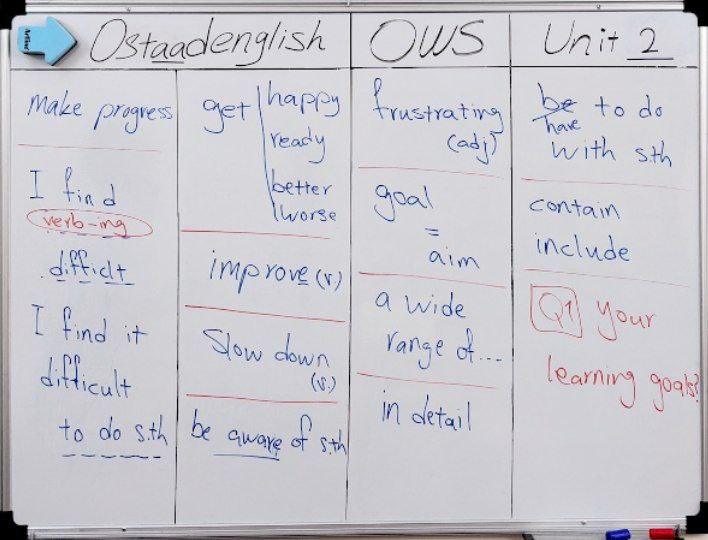 Ostaadenglish
OWS
Unit 2
make progress
I find
verb-ing
difficlt
I find it
difficult
to do s.th
get happy
ready
better
worse
improve (v.)
Slow down
(v.)
be aware of s.th
frustrating
(adj)
goal
=
aim
a wide
range of...
in detail
be to do
have
with s.th
contain
include
Q1 Your
learning goals?